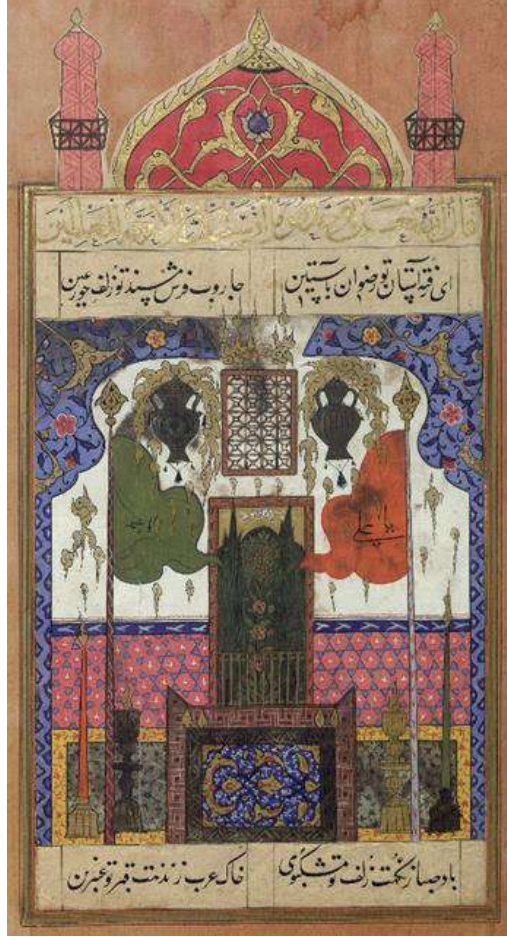 قال الله
ای رفته آستان تو رضوان بآستین جاروب فرش مسند تو زلف حور عین
یا علی
باد صبا ز نکهت زلف تو مشکبوی خاک عرب ز نزهت قبر تو عنبرین